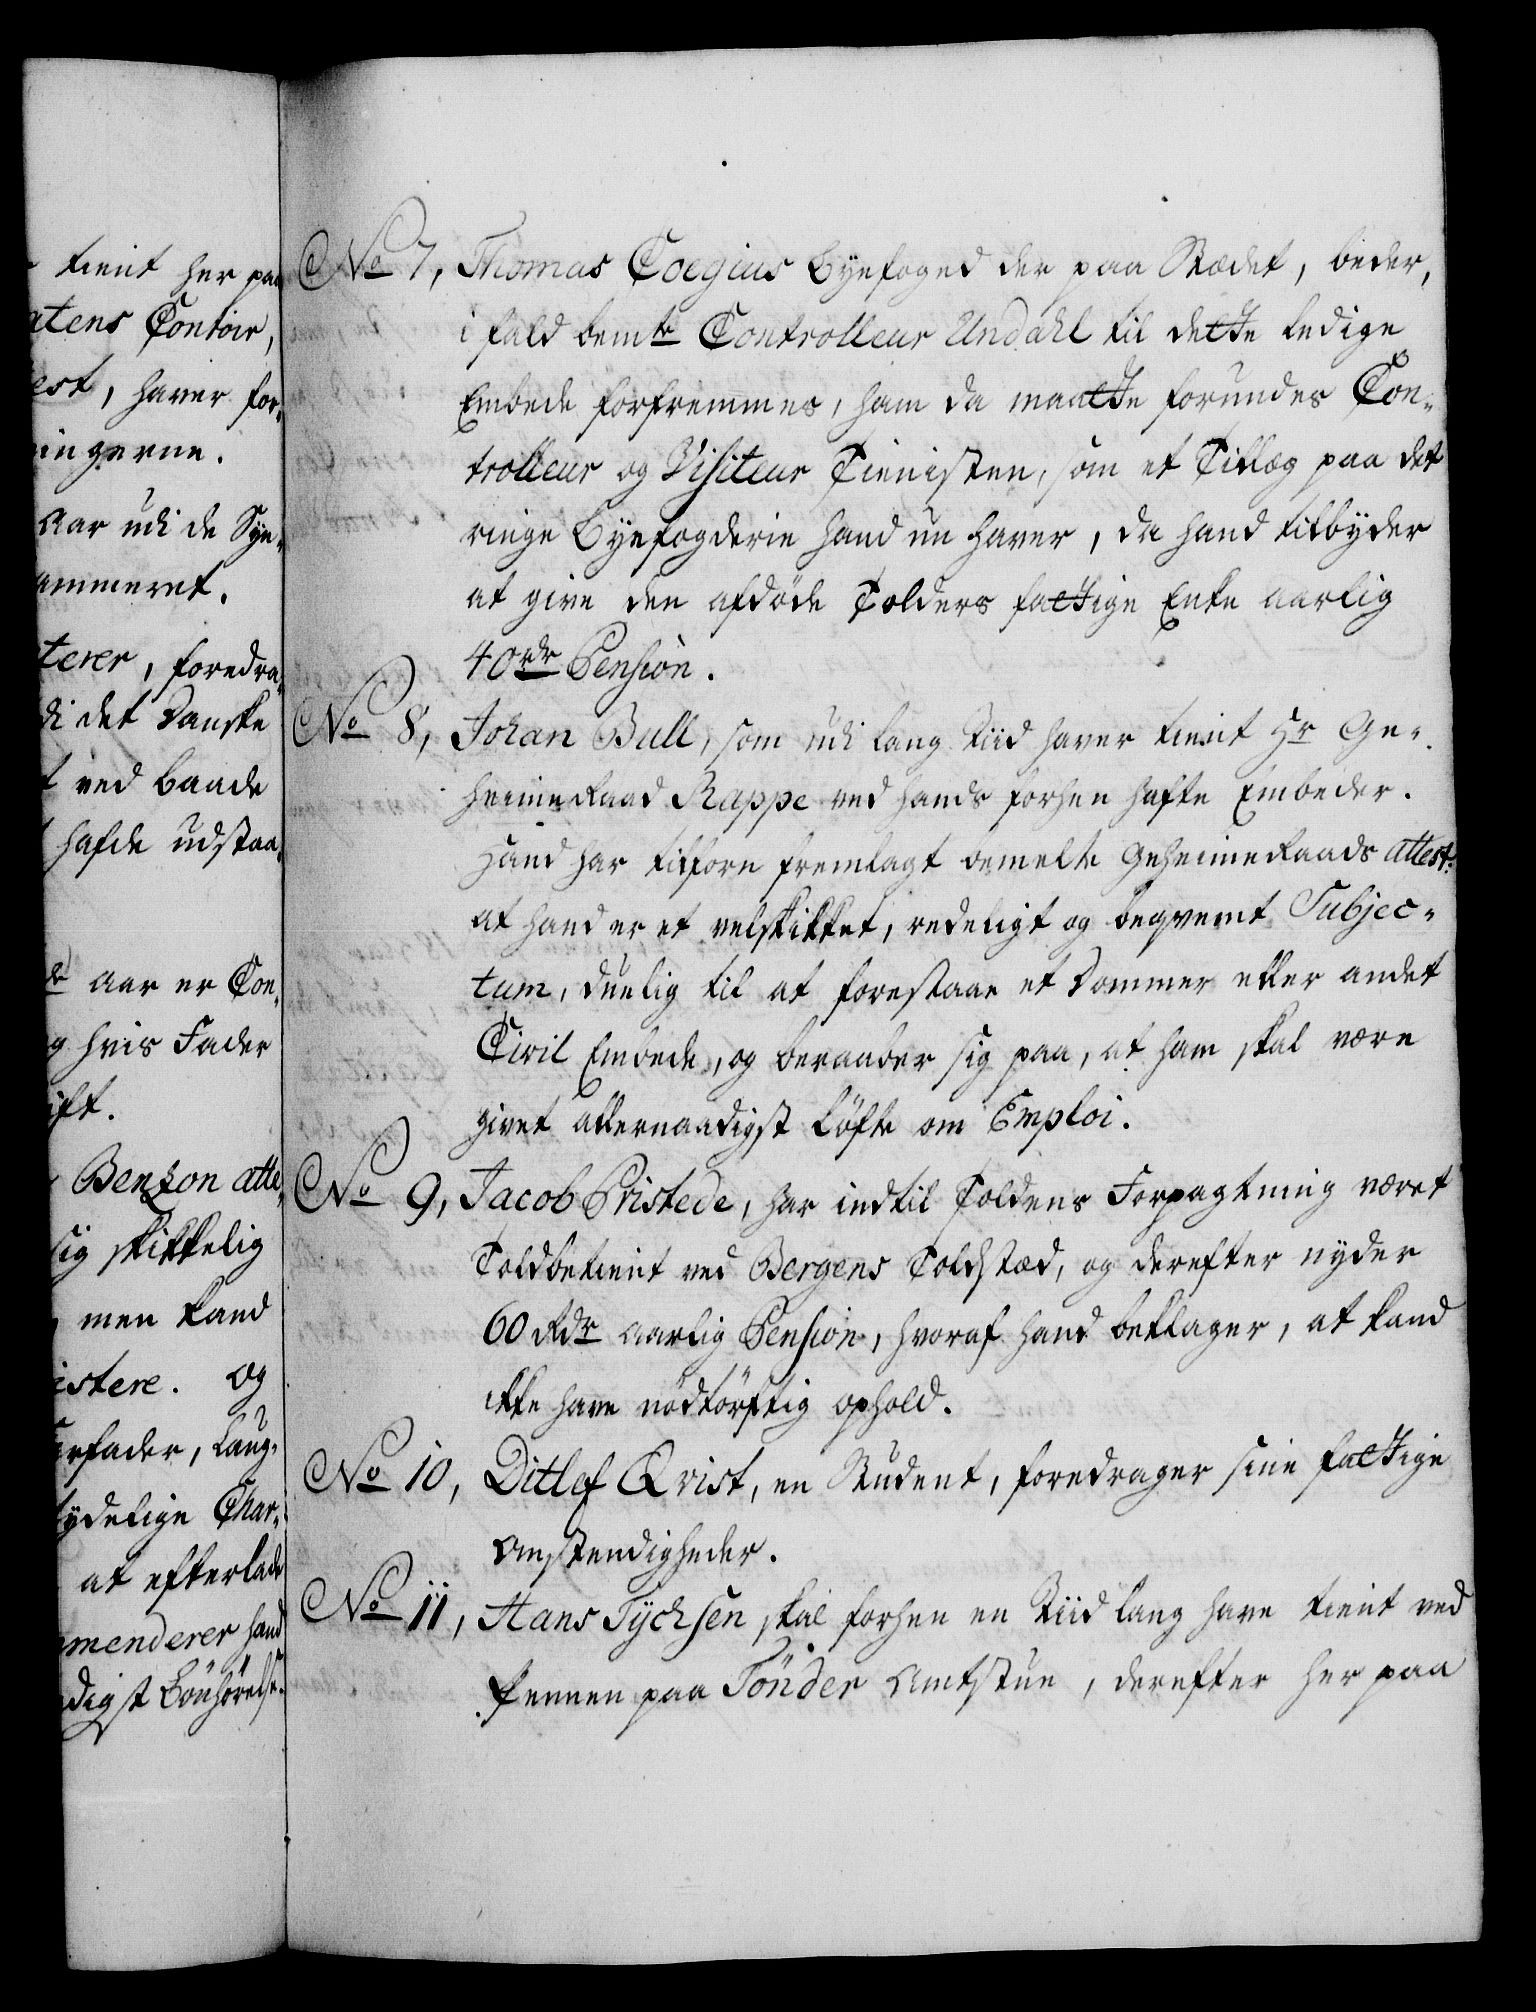 tient her paa
atens Contoir,
est, haver for-
ingerne.
Aar udi de Syn-
ammeret.
terer, foredra-
di det Danske
ved baade
hafde udstaa-
aar er Con-
hvis Fader
ift.
Benzon atte-
sig skikkelig
men kand
istere. og
rfader, Laug-
tydelige Char-
at efterlade
menderer hand
digst Bönhörelse.
No 7, Thomas Coegius Byefoged der paa Stædet, beder,
i fald bemte Controlleur Undahl til dette ledige
Embede forfremmes, ham da maatte forundes Con-
trolleur og Visiteur Tienisten, som et Tillæg paa det
ringe Byefogderie hand nu haver, da hand tilbyder
at give den afdöde Tolders fattige Enke aarlig
40 rdr Pension.
No 8, Johan Bull, som udi lang Tiid haver tient Hr Ge-
heimeRaad Rappe ved hands forhen hafte Embeder.
Hand har tilforn fremlagt bemelte GeheimeRaads attest:
at hand er et velskikket, redeligt og beqvemt Subjec-
tum, duelig til at forestaae et Dommer eller andet
Civil Embede, og beraaber sig paa, at ham skal være
givet allernaadigst Löfte om Emploi.
No 9, Jacob Pristede, har indtil Toldens Forpagtning været
Toldbetient ved Bergens Toldstæd, og derefter nyder
60 Rdr aarlig Pension, hvoraf hand beklager, at kand
ikke have nödtörftig ophold.
No 10, Ditlef Qvist, en Student, foredrager sine fattige
Omstendigheder.
No 11, Hans Tychsen skal forhen en Tiid lang have tient ved
Pennen paa Tönder Amtstue, derefter her paa